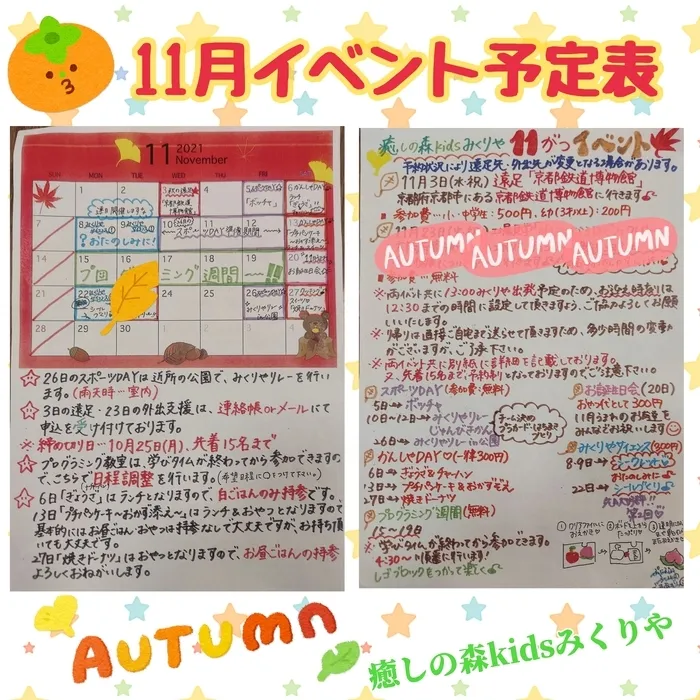 11月イベント予定表
11 2021
November
SUN MON TUE WED THU FRI SAT
1 2 3 4 5 6
7 8 9 10 11 12 13
14 15 16 17 18 19 20
21 22 23 24 25 26 27
28 29 30
京都鉄道
博物館
おたのしみに!
プログラミング週間
26日のスポーツDAYは近所の公園で、みくりやリレーを行い
ます。(雨天時…室内)
3日の遠足・23日の外出支援は、連絡帳orメールにて
申込を受け付けております。
※締め切り日…10月25日(月)、先着15名まで
プログラミング教室は、学びタイムが終わってから参加できますの
で、こちらで日程調整を行います。
6日「ぎょうざ」はランチとなりますので、白ごはんのみ持参です。
13日「プチパンケーキ〜おかず添え〜」はランチ&おやつとなりますので
基本的にはお昼ごはん・おやつは持参なしで大丈夫ですが、お持ち頂
いても大丈夫です。
27日「焼きドーナツ」はおやつとなりますので、お昼ごはんの持参
よろしくおねがいします。
癒しの森kidsみくりや 11がつイベント
予約状況により遠足先・外出先が変更となる場合があります。
11月3日(水・祝) 遠足「京都鉄道博物館」
京都府京都市にある京都鉄道博物館に行きます
参加費…小・中学生:500円、幼(3才以上):200円
AUTUMN AUTUMN AUTUMN
参加費…無料
※両イベント共に13:00みくりや出発予定のため、お迎え時刻は
12:30までの時間に設定して頂きますよう、ご協力よろしくお願
いいたします。
※帰りは直接ご自宅まで送らせて頂きますため、多少時間の変動
がございますが、ご了承下さい。
※両イベント共に別紙に詳細を記載しております。
又、先着15名まで、予約制となっておりますのでご注意下さい
スポーツDAY(参加費:無料)
5日→ボッチャ
10日〜12日→みくりやリレー
じゅんびきかん
26日→みくりやリレーin公園
お誕生日会(20日)
おやつ代として300円
11月うまれのお友達を
みんなでお祝いします
かんしゃDAY♡(一律300円)
6日→ぎょうざ&チャーハン
13日→プチパンケーキ&おかずぞえ
27日→焼きドーナツ
みくりやダイエンス(300円)
8・9日→シークレット
おたのしみに
22日→シールづくり
プログラミング週間(無料)
15〜19日
※学びタイムが終わってから参加できます。
4:30から順番に行います!
レゴブロックをつかって楽しく
AUTUMN
癒しの森kidsみくりや